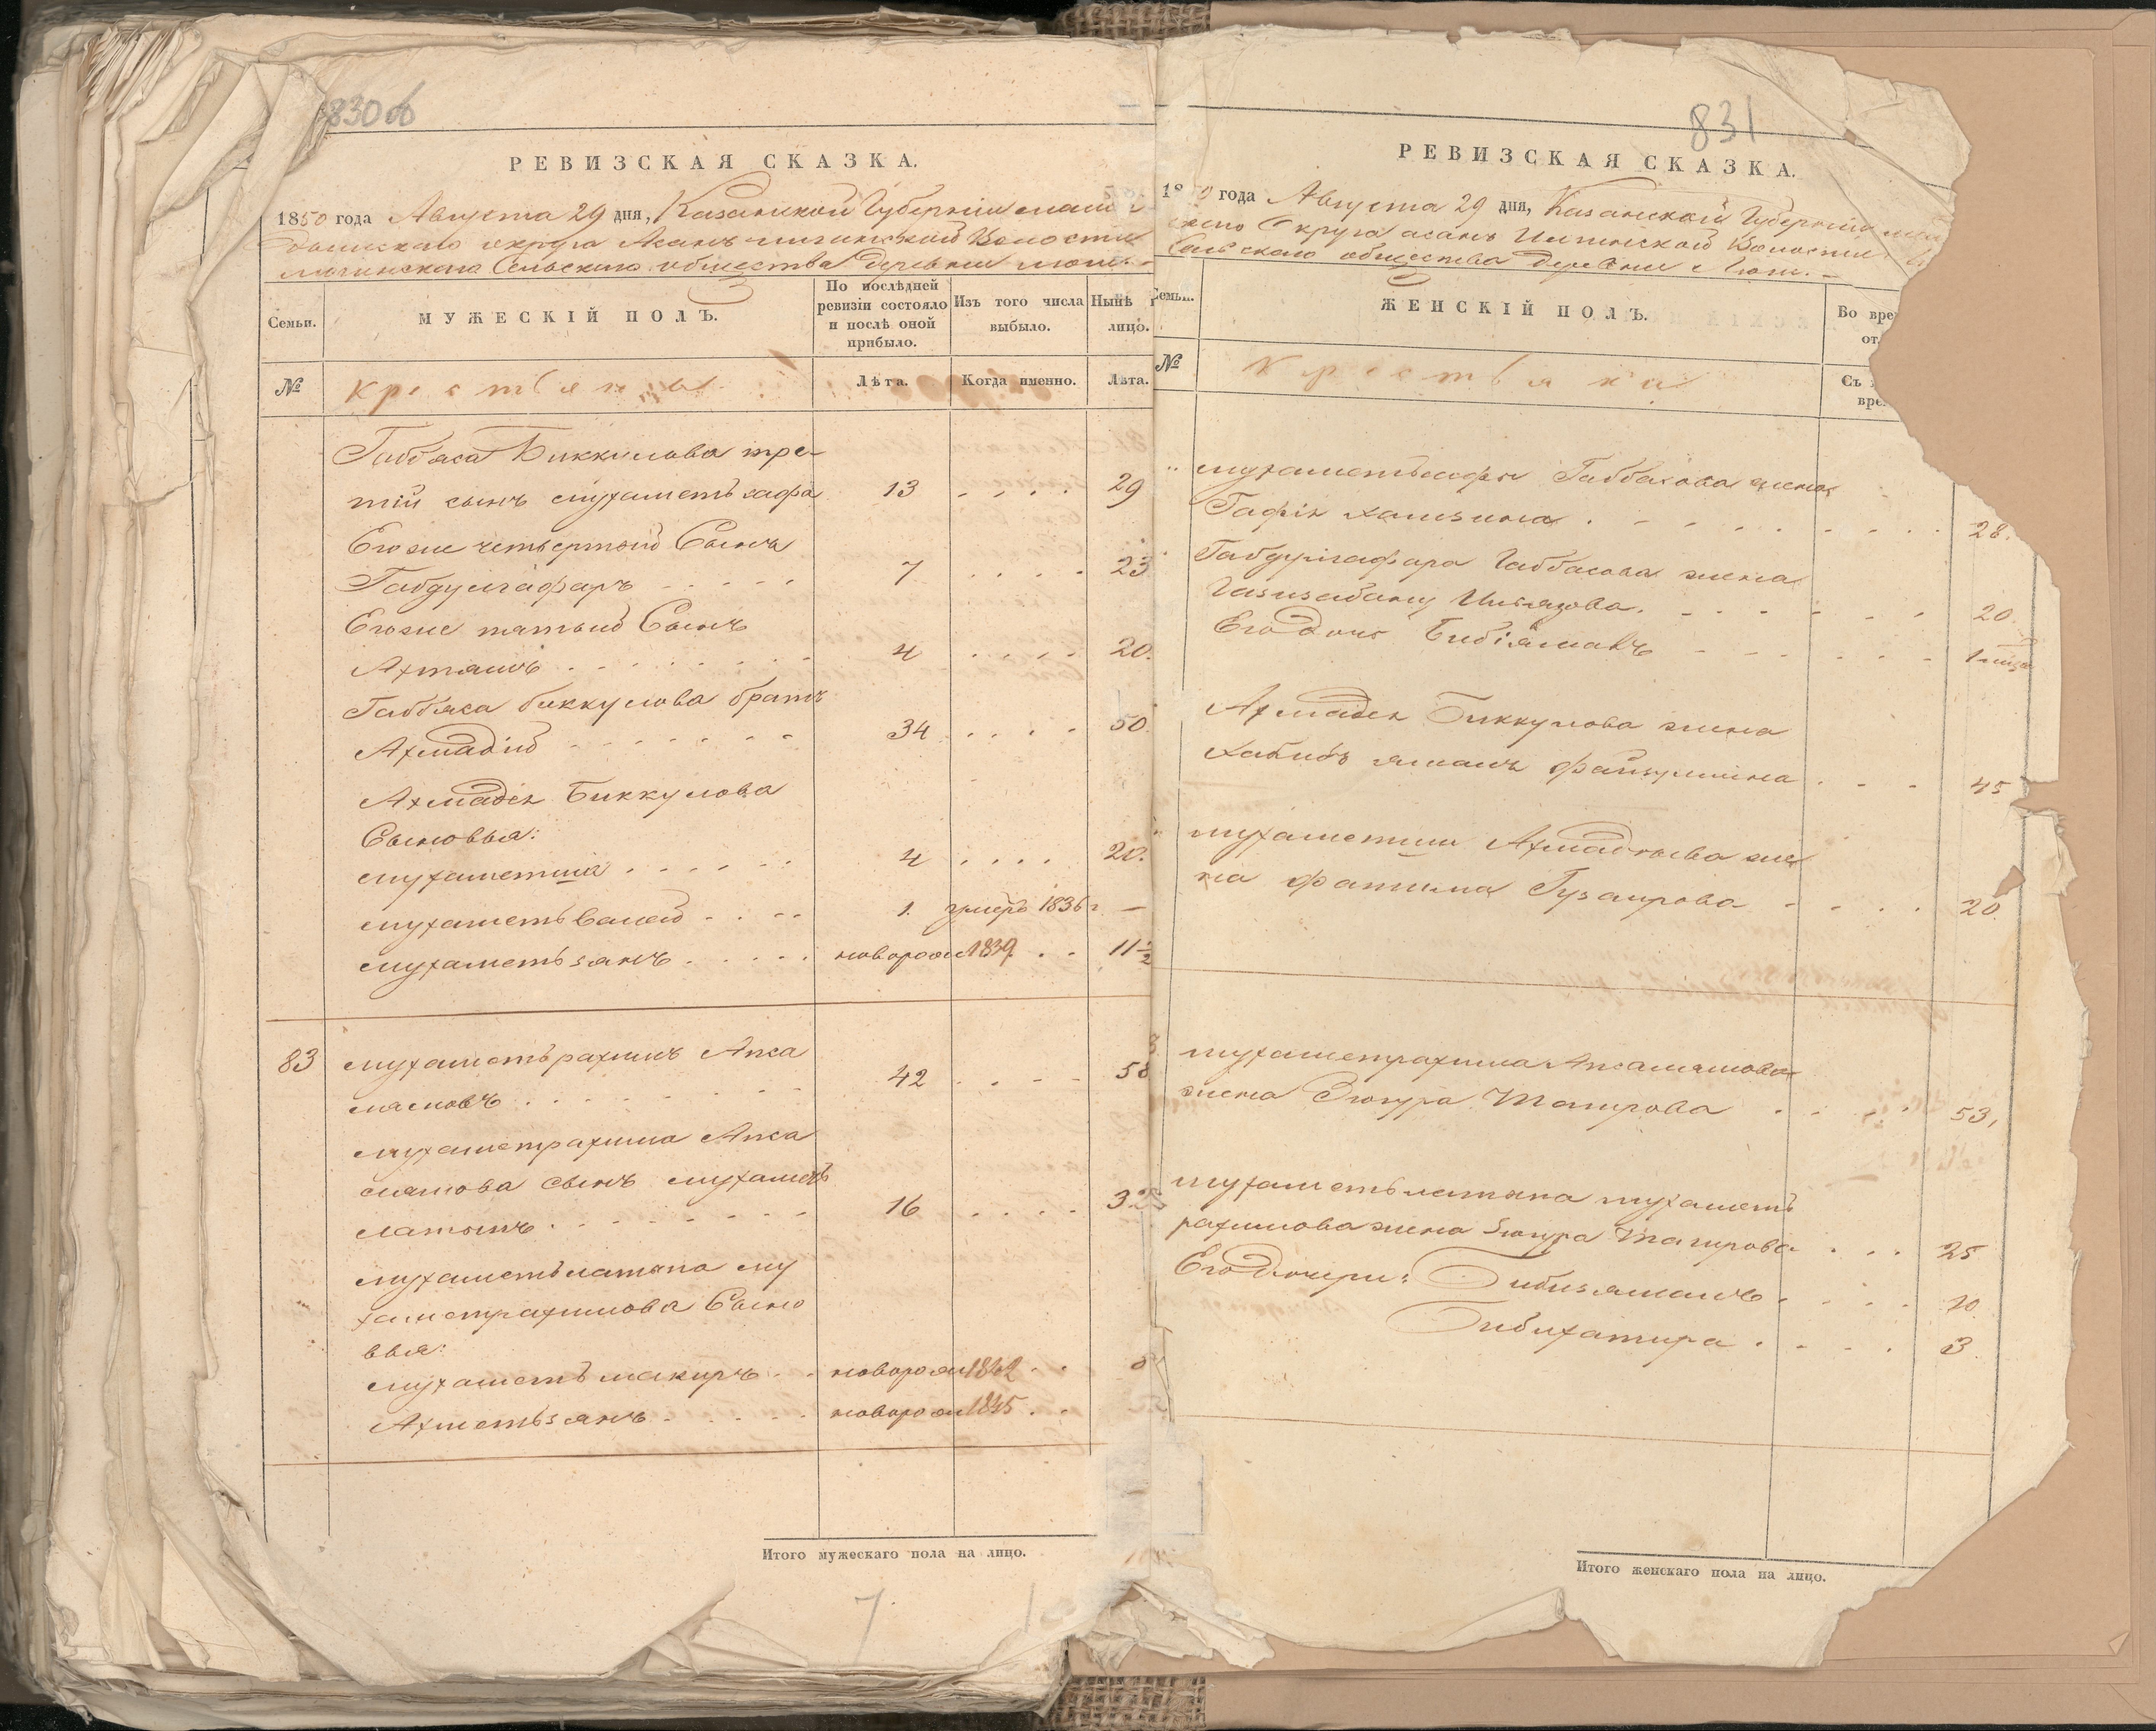 830 об
РЕВИЗСКАЯ СКАЗКА.
1850 года Августа 29 дня, Казанской Губерніи
округа Асанъ Волости
Сельскаго общества деревни
Семьи.
МУЖЕСКІЙ ПОЛЪ.
По послѣдней ревизіи состояло и послѣ оной прибыло.
Изъ того числа выбыло.
Нынѣ на лицо.
№
Крестьяны
Лѣта.
Когда именно.
Лѣта.
Габбяса Биккулова тре-
тій сынъ Мухаметъ сафа 13 29
Егоже четвертой Сынъ
Габдулгафаръ 7 23
Егоже пятый Сынъ
Ахтямъ 4 20.
Габбяса биккулова братъ
Ахмадій 34 50.
Ахмадія Биккулова
Сыновья:
Мухаметша 4 20.
Мухаметъ Валей 1. умеръ 1836 г. —
Мухаметъ зянъ новорож 1839. 11 1/2
83 Мухаметърахимъ Апса
лямовъ 42 58
Мухаметрахима Апса
лямова сынъ Мухаметъ
латыпъ 16 32
Мухаметълатыпа Му
хаметрахимова Сыно
вья:
Мухаметъ шакиръ новорож 1842 8
Ахметъ зянъ новорож 1845
Итого мужескаго пола на лицо.
7
831
РЕВИЗСКАЯ СКАЗКА.
1850 года Августа 29 дня, Казанской Губерніи
округа асанъ Волости
общества деревни
Семьи.
ЖЕНСКІЙ ПОЛЪ.
Во вре
от
№
Крестьянки
Съ
вре
Мухаметъсафы Габбасова жена
Гафія Хамзина 28.
Габдулгафара Габбасова жена
Газизабану Ильязова. 20
Его Дочь Бибіямалъ
Ахмадія Биккулова жена
Хабибъ ямалъ файзуллина 45
Мухаметши Ахмадыева же
на фатима Гузаирова 20
Мухаметрахима Апсалямова
жена Зюгра Тагирова 53,
Мухаметълатыпа Мухаметъ
рахимова жена Зюгра Тагирова 25
Его Дочери: Бибизямалъ 10
Бибихатира 3
Итого женскаго пола на лицо.